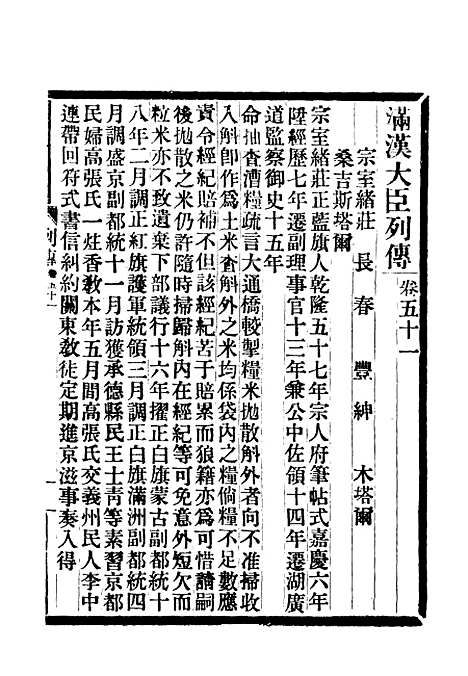 滿漢大臣列傳 卷五十一
宗室緒莊 長春 豐紳 木塔爾
桑吉斯塔爾
宗室緒莊正藍旗人乾隆五十七年宗人府筆帖式嘉慶六年
陞經歷七年遷副理事官十三年兼公中佐領十四年遷湖廣
道監察御史十五年
命抽查漕糧疏言大通橋較掣糧米拋散斛外者向不准掃收
入斛即作爲土米查斛外之米均係袋內之糧倘糧不足數應
責令經紀賠補不但該經紀苦于賠累而狼籍亦爲可惜請嗣
後拋散之米仍許隨時掃歸斛內在經紀等可免意外短欠而
粒米亦不致遺棄下部議行十六年擢正白旗蒙古副都統十
八年二月調正紅旗護軍統領三月調正白旗滿洲副都統四
月調盛京副都統十一月訪獲承德縣民王士靑等素習京都
民婦高張氏一炷香敎本年五月間高張氏交義州民人李中
連帶回符式書信糾約關東敎徒定期進京滋事奏入得
列傳 卷五十一 一